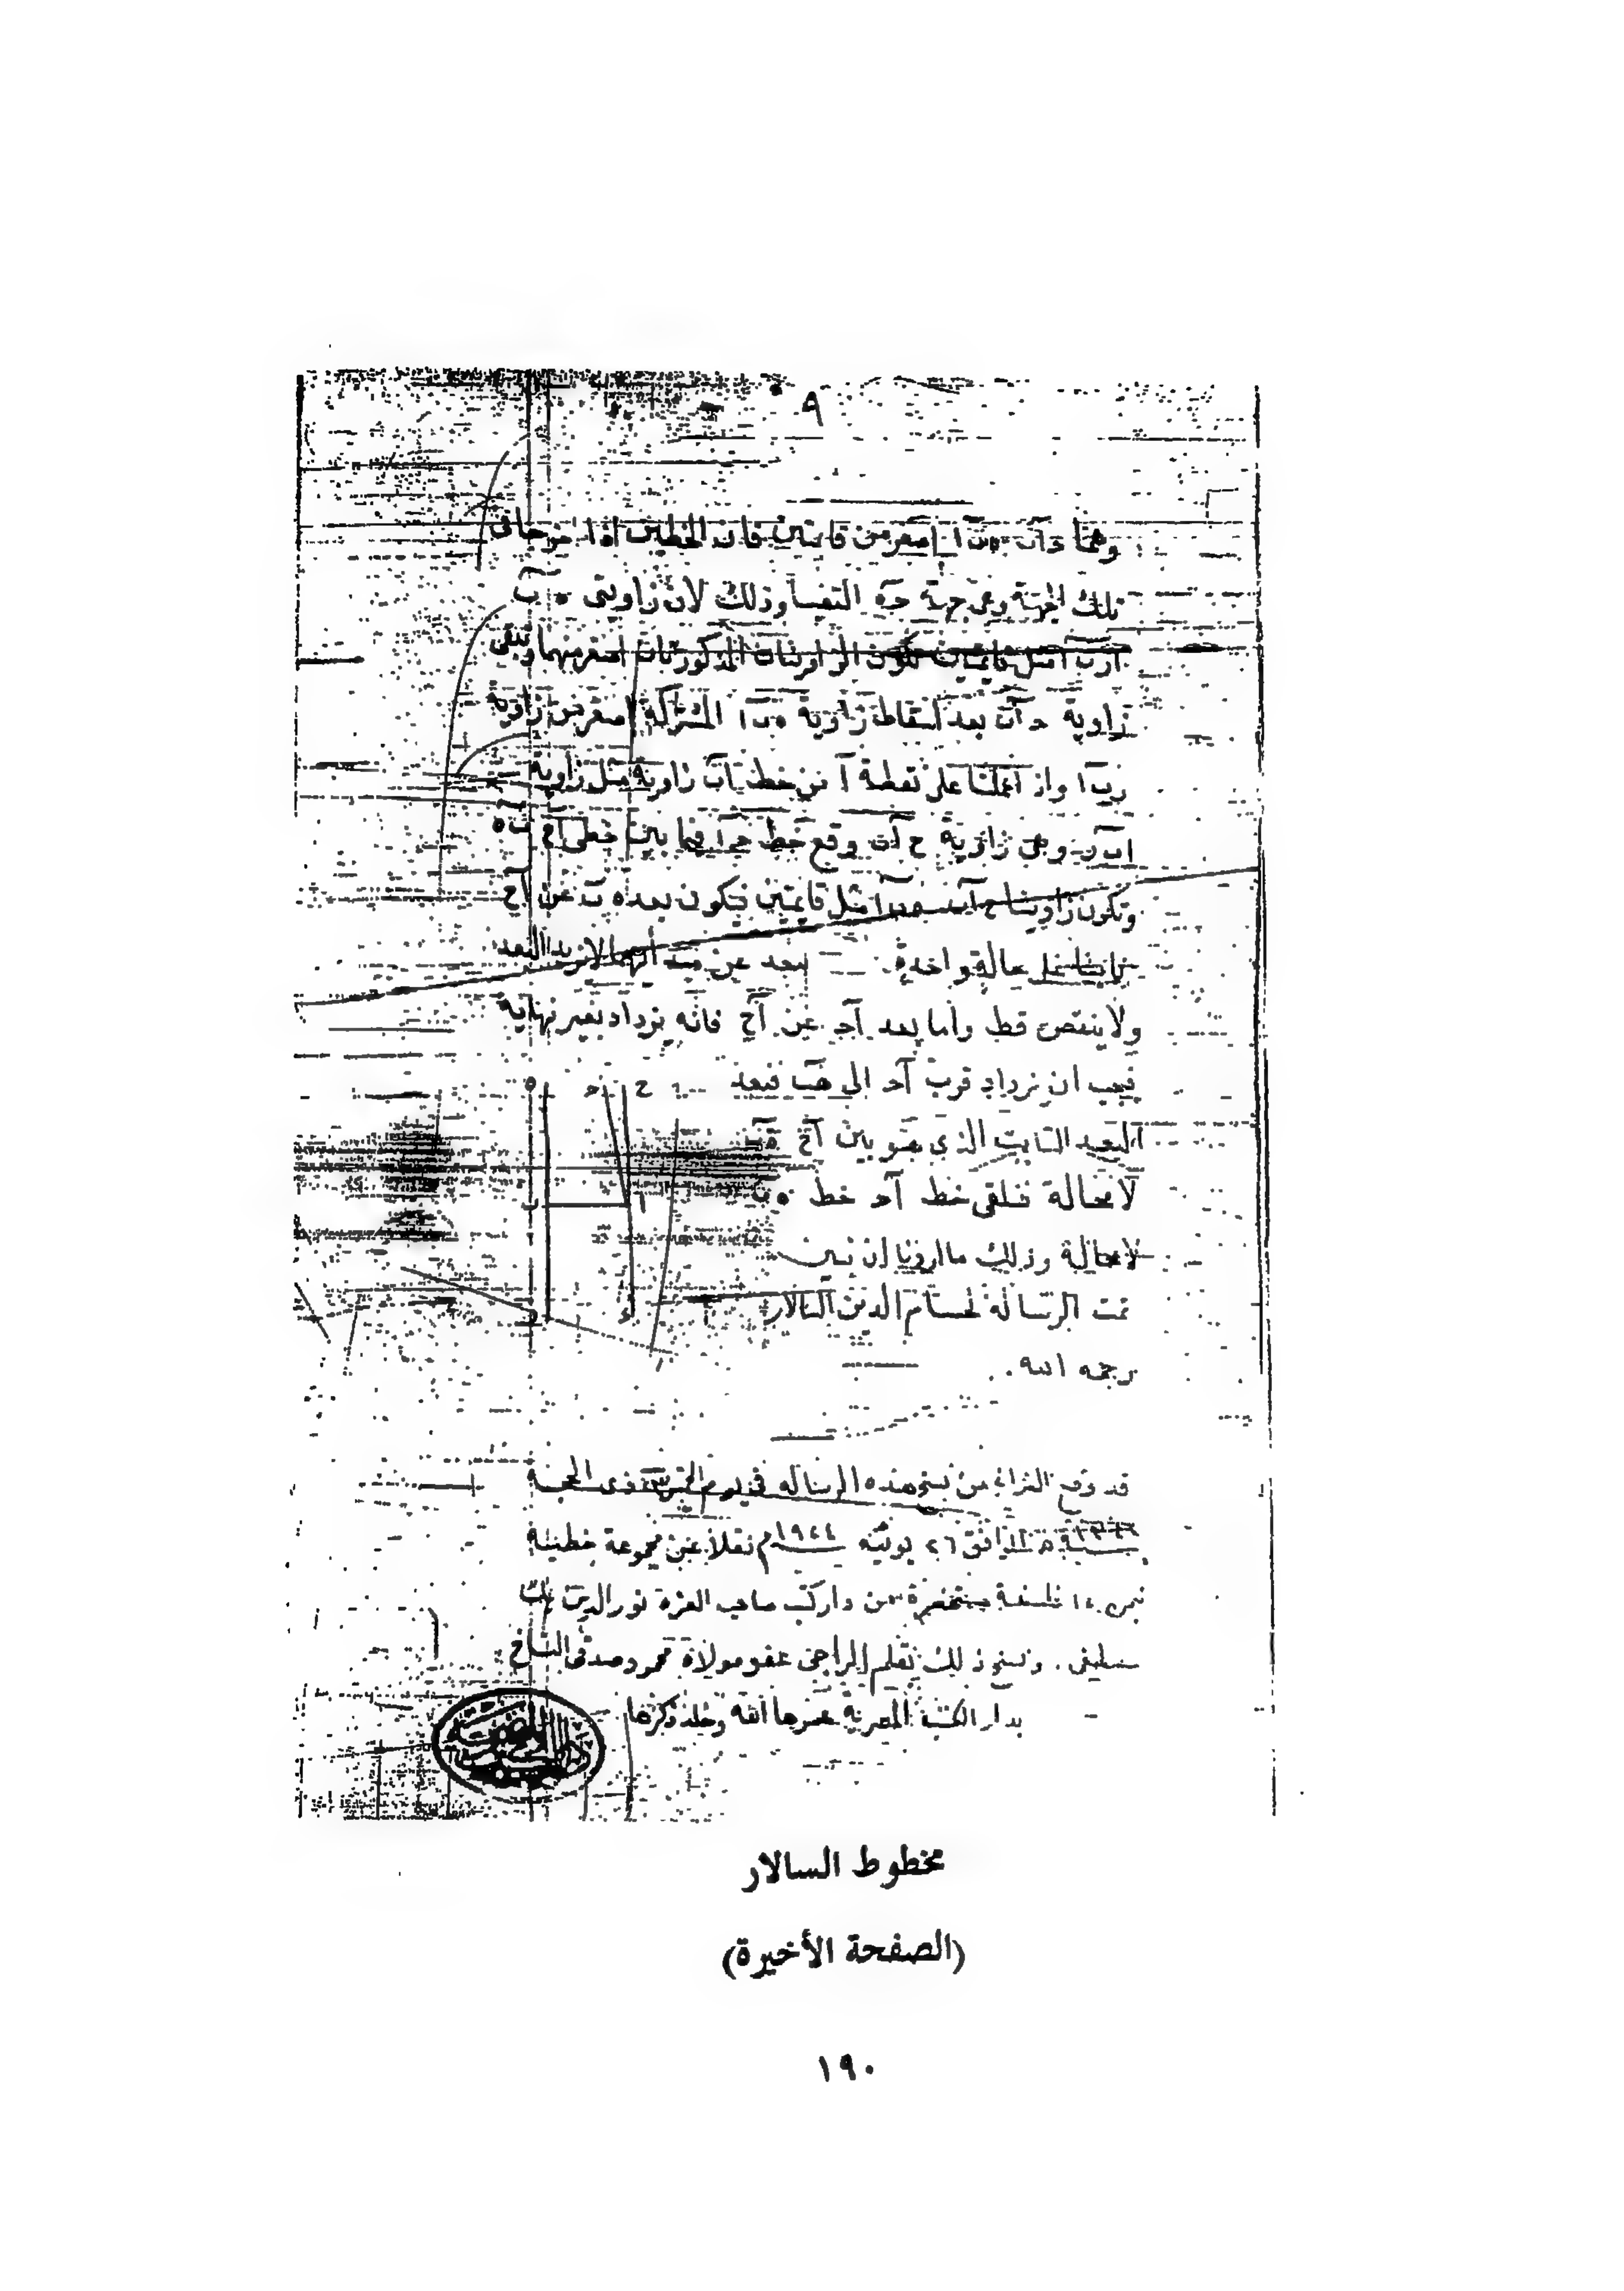 ٩
وهما حاب هبا اصغر من قايمتين فان الخطين اذا اخرجا فى
تلك الجهة وهى جهة حه التقيا وذلك لان زاويتى ه ب
ازب ا مثل قايمتين تكون الزاويتان المذكورتان اصغر منهما وتبقى
زاوية حاب بعد اسقاط زاوية هبا المشتركة اصغر من زاوية
زبا واذ اعملنا على نقطة ا من خط اب زاوية مثل زاوية
ابز وهى زاوية ح اب وقع خط حا فيما بين خطى اح به
وتكون زاويتا ح اب هبا مثل قايمتين فيكون بعد ه ب عن اح
ثابتا على حالة واحدة لا يزيد البعد
ولا ينتقص قط واما بعد اح عن اح فانه يزداد بغير نهاية
فيجب ان يزداد قرب اح الى هب فبعد
البعد الثابت الذى هو بين اح هب
لا محالة فيلقى خط اح خط ه ب
لا محالة وذلك ما اردنا ان نبين
ح ح ه
ا ب
تمت الرسالة لحسام الدين السالار
رحمه الله .
قد وقع الفراغ من نسخ هذه الرسالة فى يوم ذى الحجة
سنة الموافق ٢٦ يونيه ١٩٤٤م نقلا عن مجموعة خطية
فلسفة مستحضرة من دار كتب صاحب العزة نور الدين بك
مصطفى . ونسخ ذلك بقلم الراجى عفو مولاه محمود صدقى النساخ
بدار الكتب المصرية عمرها الله وخلد ذكرها
مخطوط السالار
(الصفحة الأخيرة)
١٩٠